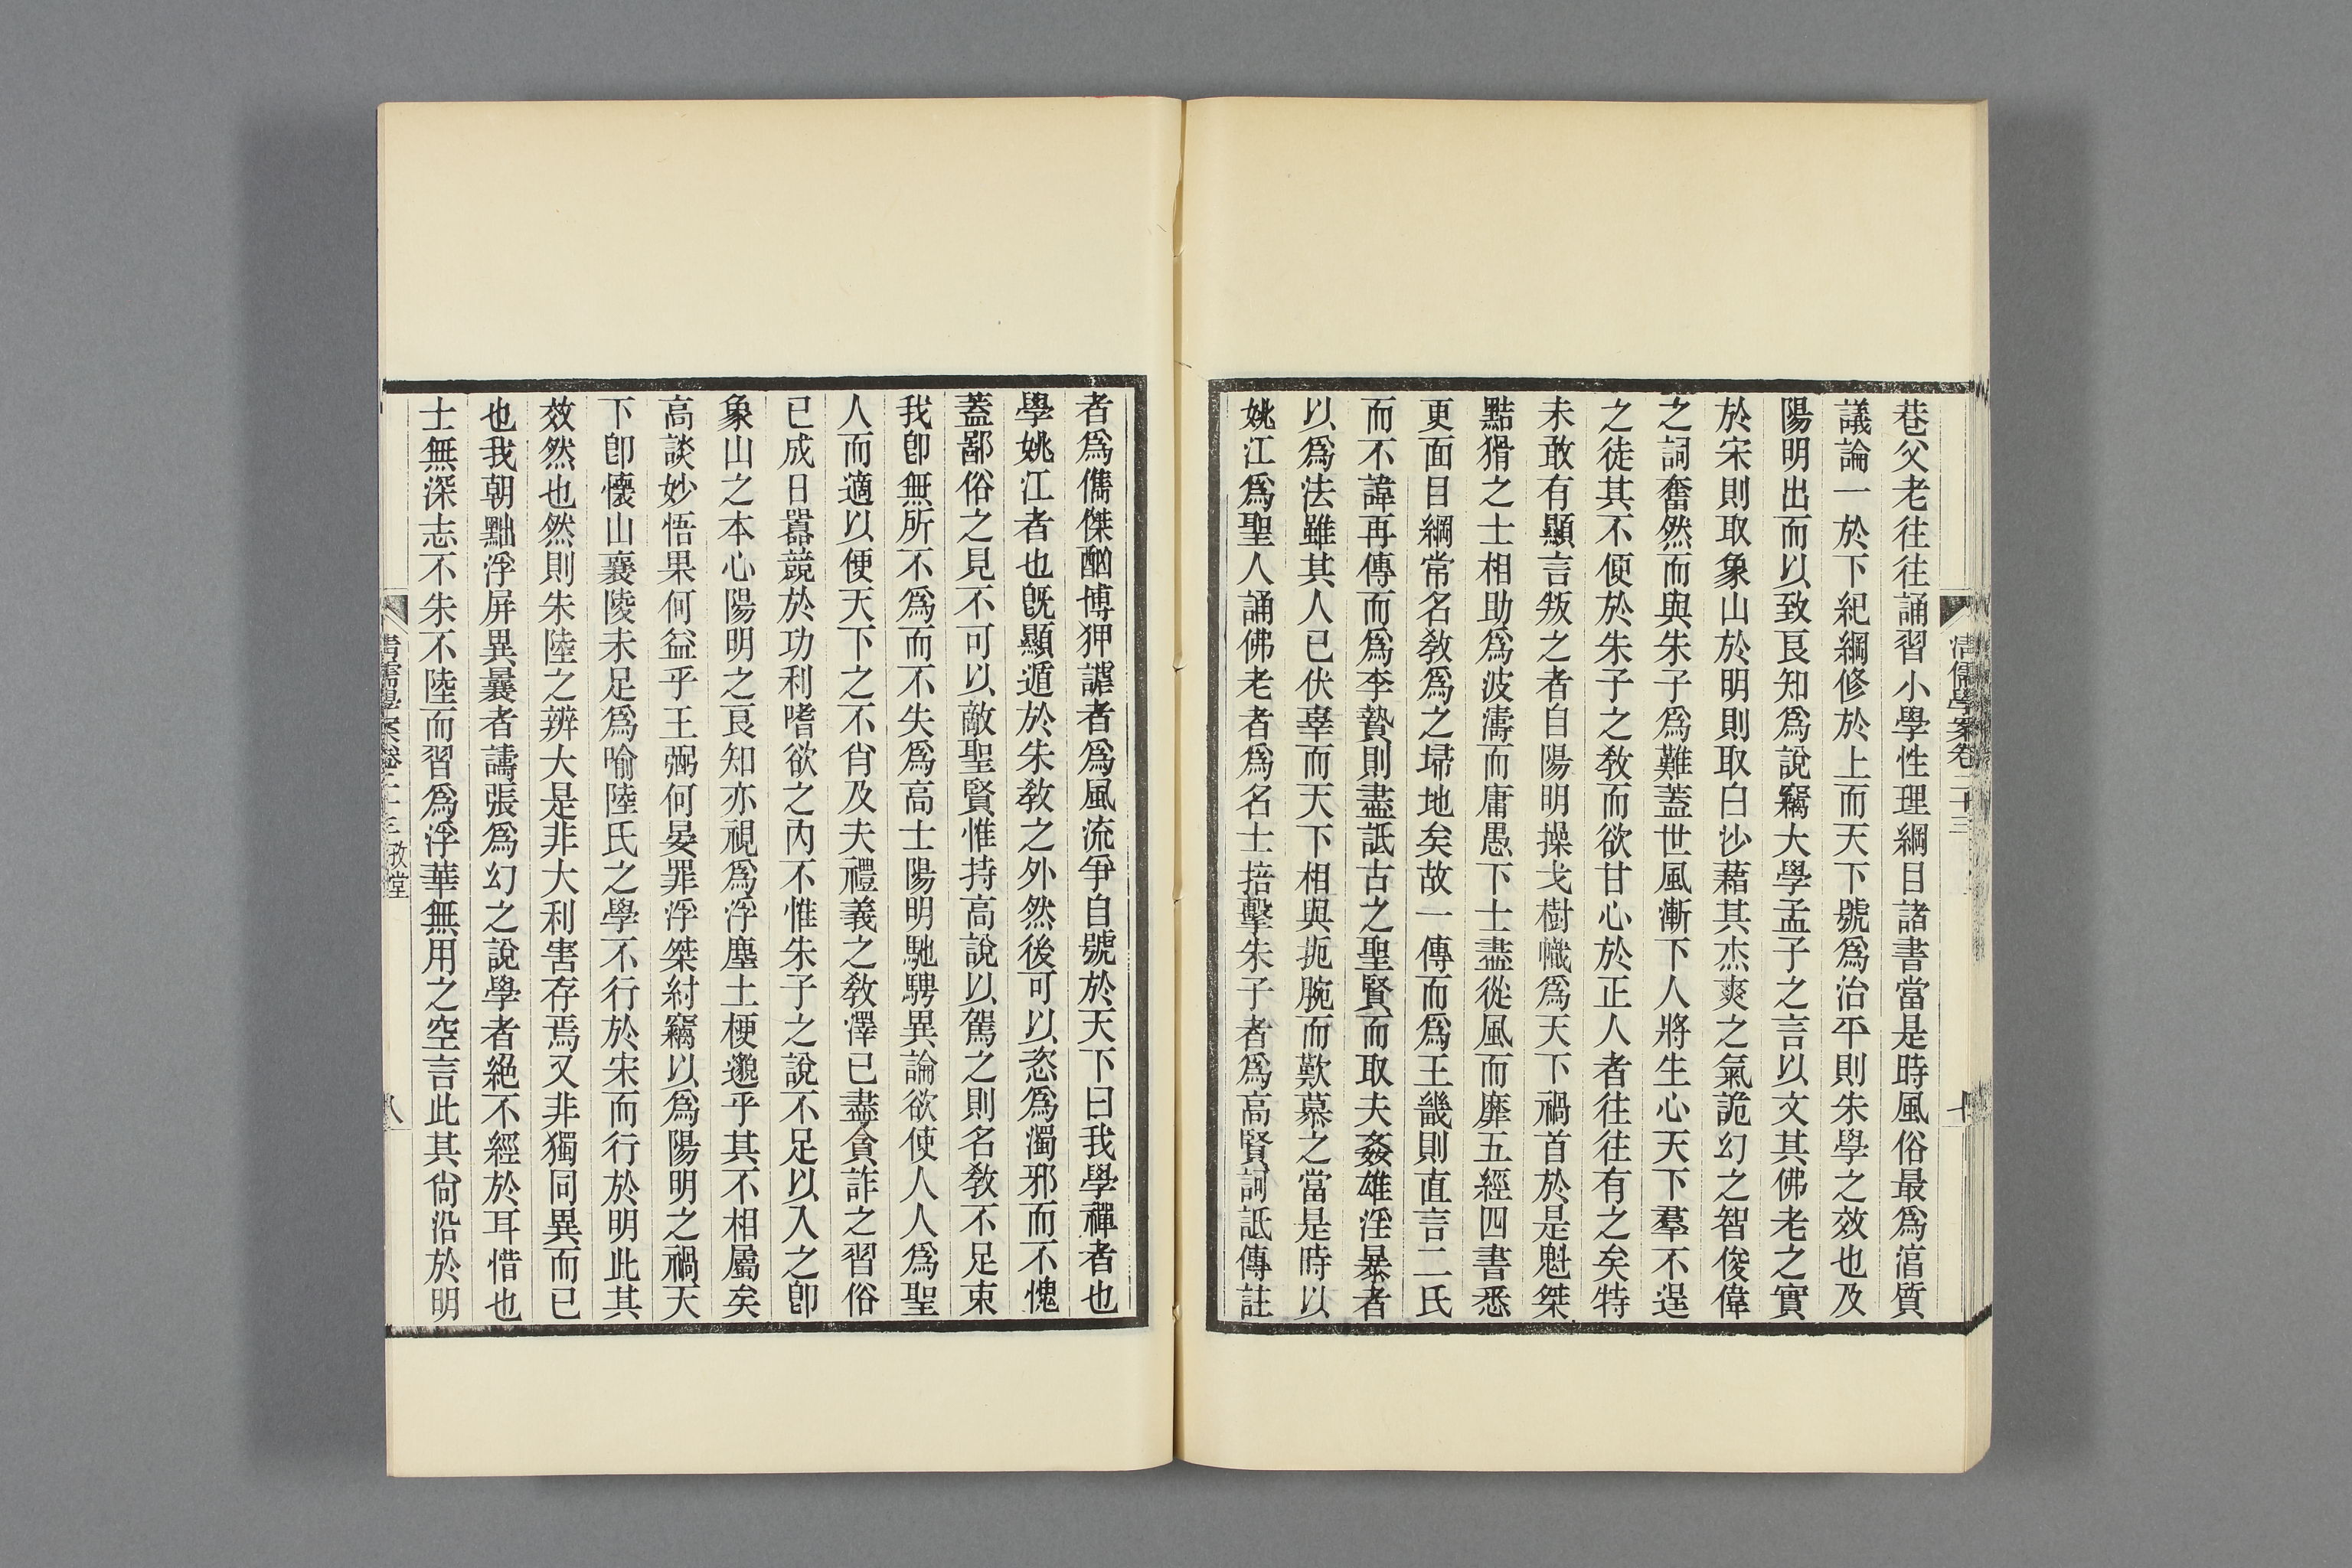 清儒學案卷二十三
巷父老往往誦習小學性理綱目諸書當是時風俗最爲湻質
議論一於下紀綱修於上而天下號爲治平則朱學之效也及
陽明出而以致良知爲說竊大學孟子之言以文其佛老之實
於宋則取象山於明則取白沙藉其杰爽之氣詭幻之智俊偉
之詞奮然而與朱子爲難蓋世風漸下人將生心天下羣不逞
之徒其不便於朱子之敎而欲甘心於正人者往往有之矣特
未敢有顯言叛之者自陽明操戈樹幟爲天下禍首於是魁桀
黠猾之士相助爲波濤而庸愚下士盡從風而靡五經四書悉
更面目綱常名敎爲之埽地矣故一傳而爲王畿則直言二氏
而不諱再傳而爲李贄則盡詆古之聖賢而取夫姦雄淫暴者
以爲法雖其人已伏辜而天下相與扼腕而歎慕之當是時以
姚江爲聖人誦佛老者爲名士掊擊朱子者爲高賢訶詆傳註
者爲儁傑酗博狎謔者爲風流爭自號於天下曰我學禪者也
學姚江者也旣顯遁於朱敎之外然後可以恣爲濁邪而不愧
蓋鄙俗之見不可以敵聖賢惟持高說以駕之則名敎不足束
我卽無所不爲而不失爲高士陽明馳騁異論欲使人人爲聖
人而適以便天下之不肖及夫禮義之敎澤已盡貪詐之習俗
已成日囂競於功利嗜欲之內不惟朱子之說不足以入之卽
象山之本心陽明之良知亦視爲浮塵土梗邈乎其不相屬矣
高談妙悟果何益乎王弼何晏罪浮桀紂竊以爲陽明之禍天
下卽懷山襄陵未足爲喻陸氏之學不行於宋而行於明此其
效然也然則朱陸之辨大是非大利害存焉又非獨同異而已
也我朝黜浮屏異曩者譸張爲幻之說學者絕不經於耳惜也
士無深志不朱不陸而習爲浮華無用之空言此其尙沿於明
清儒學案卷二十三
八